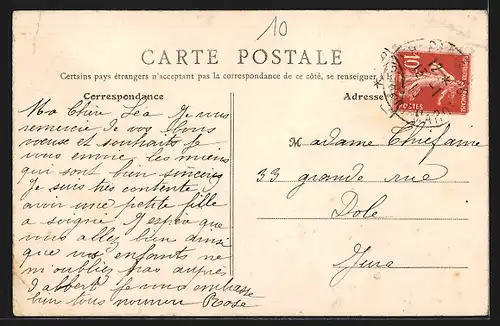 10
CARTE POSTALE
Certains pays étrangers n'acceptant pas la correspondance de ce côté, se renseigner à
Correspondance
Adresse
Ma Chère Léa Je vous
remercie de vos bons
voeux et souhaits je
vous envoie les miens
qui sont bien sincères
Je suis très contente d
avoir une petite fille
a soigné J'espère que
vous allez bien ainsi
que vos enfants ne
m'oubliez pas auprès
d'albert Je vous embrasse
bien tous Rose
M adame Chiefaine
33 grande rue
Dole
Jura
10
POSTES